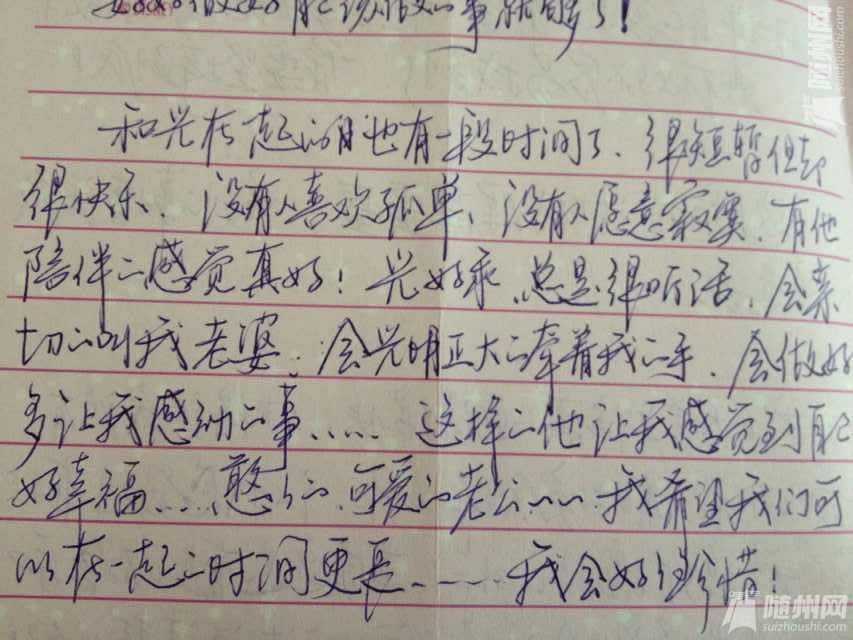 做好自己该做的事就够了!
随州网
suizhoushi.com
和光在一起的日也有一段时间了、很短暂但却
很快乐、没有人喜欢孤单、没有人愿意寂寞、有他
陪伴的感觉真好!光好乖、总是很听话、会亲
切的叫我老婆、会光明正大的牵着我的手、会做好
多让我感动的事......这样的他让我感觉到自己
好幸福......憨憨的、可爱的老公......我希望我们可
以在一起的时间更长......我会好好珍惜!
随州网
suizhoushi.com